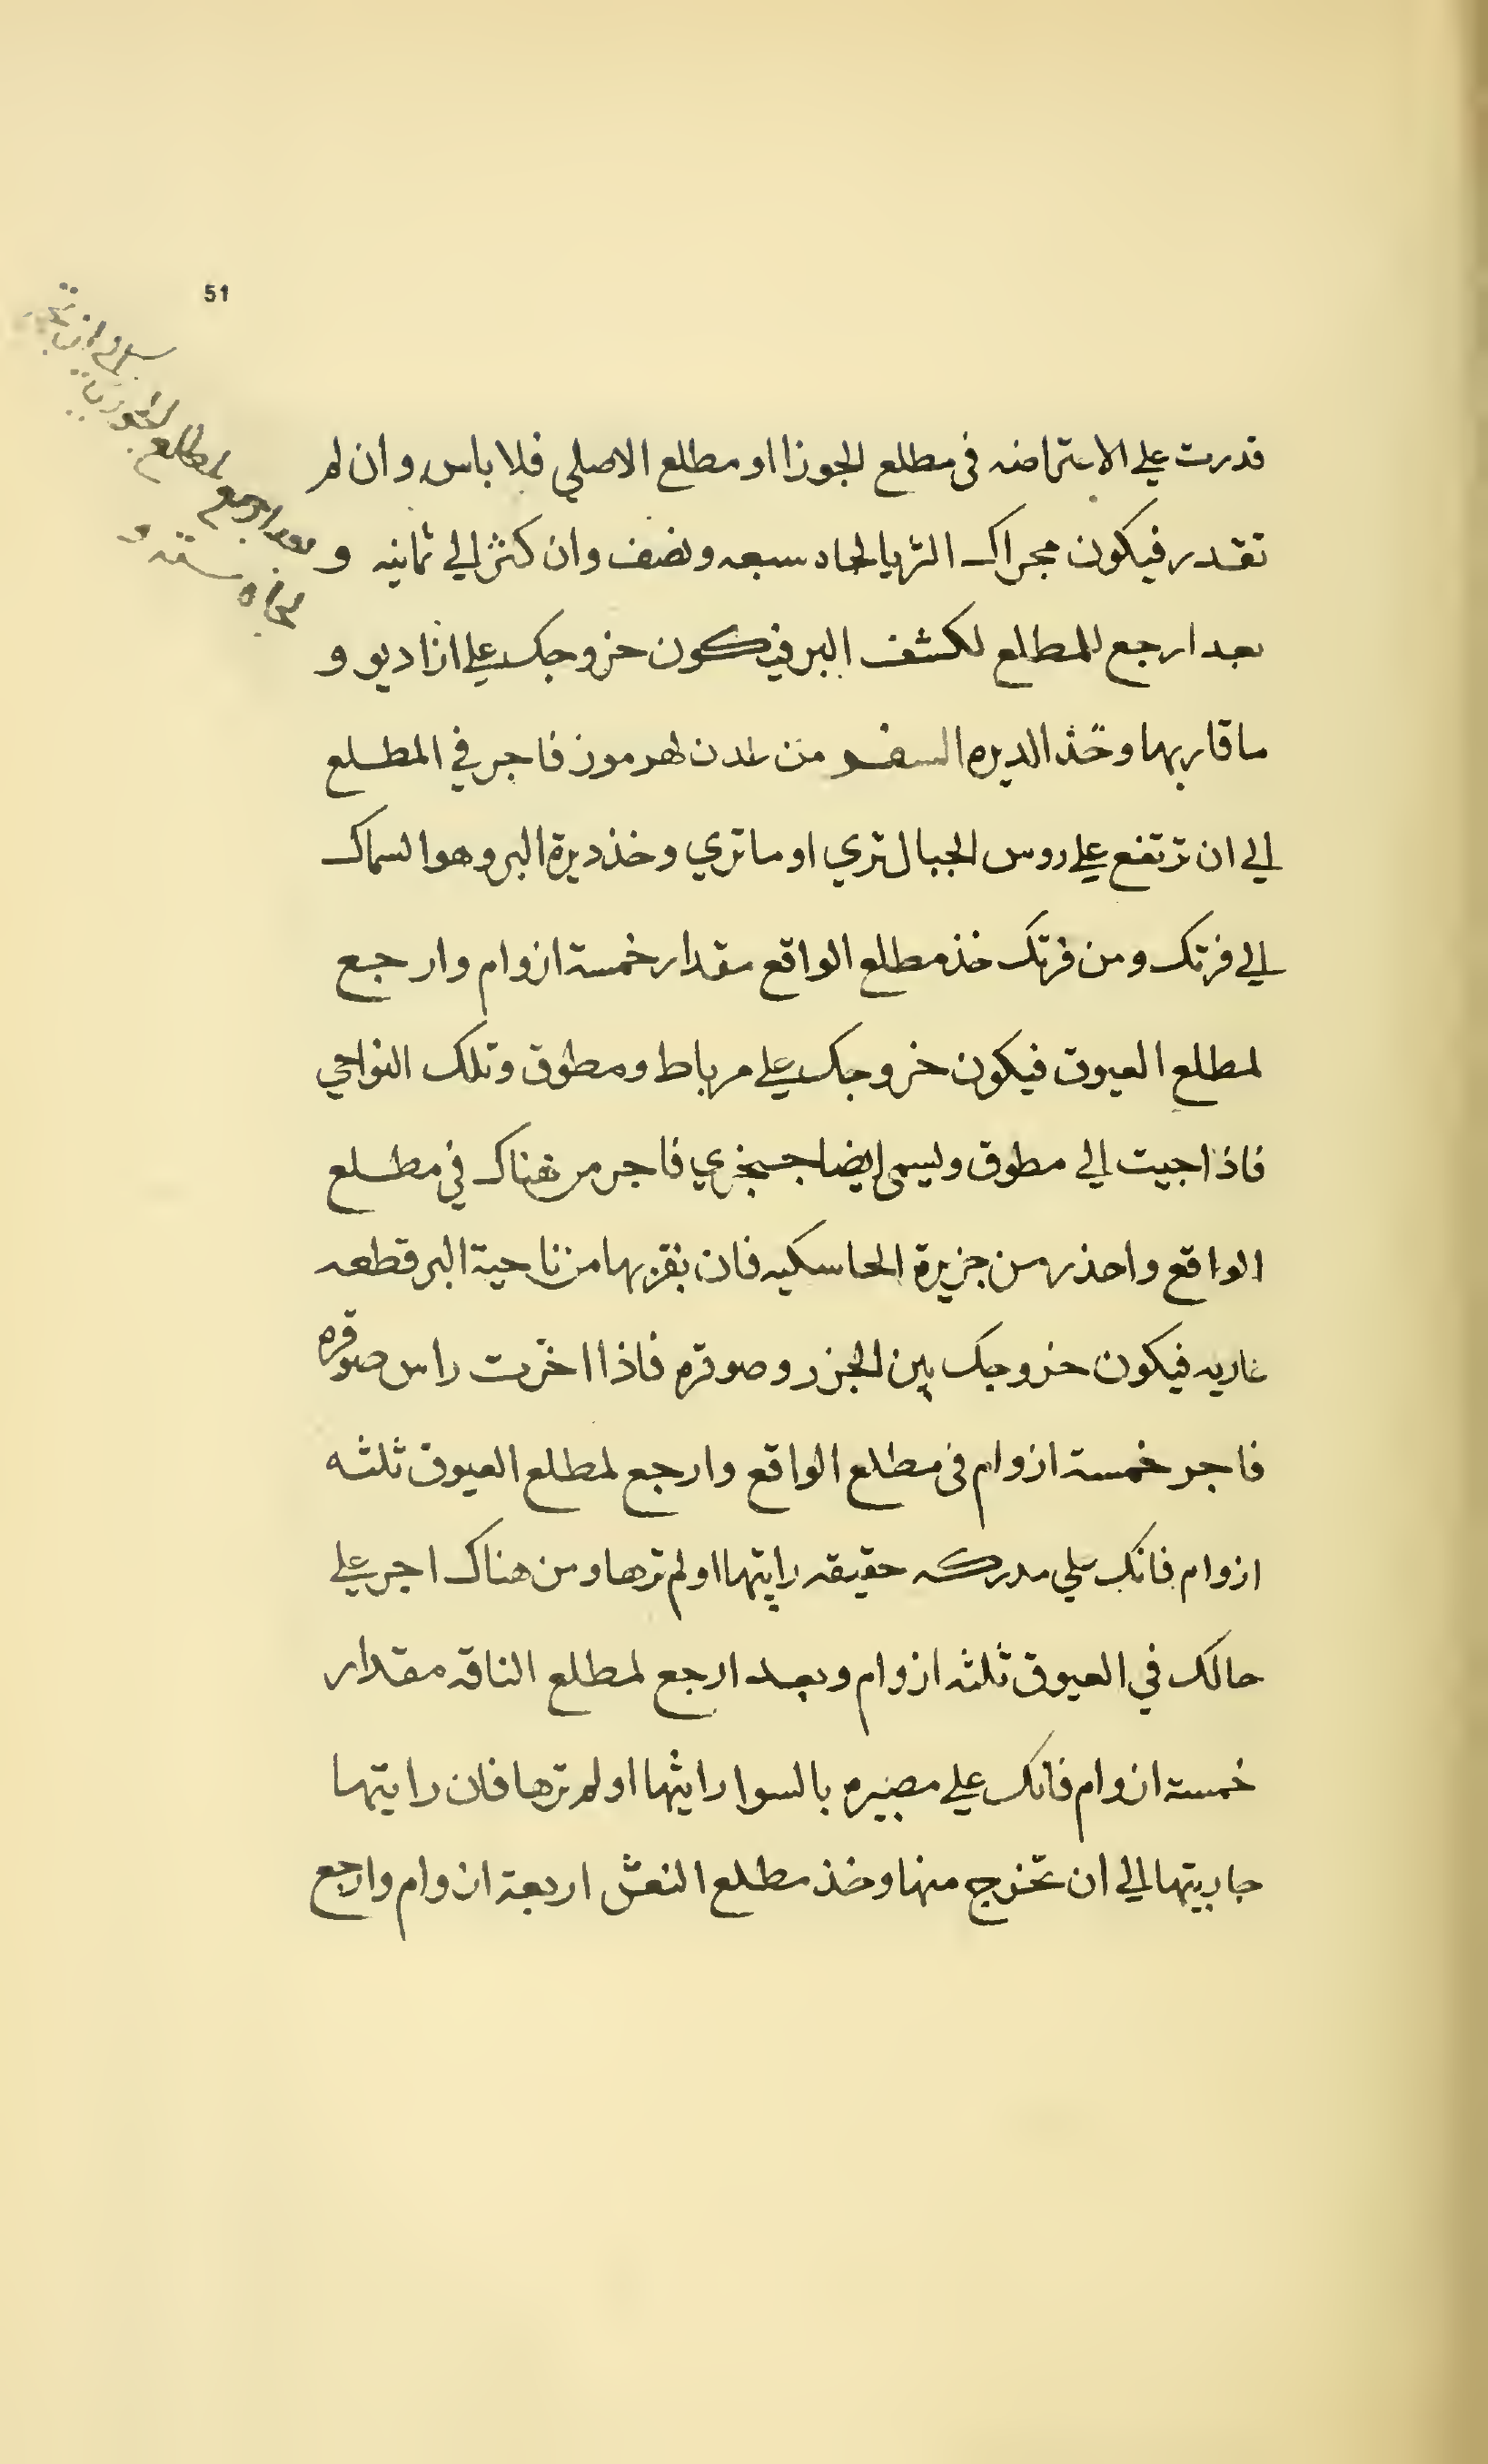 51
قدرت علي الاستراضه في مطلع الجوزا او مطلع الاصلي فلا باس وان لم
تقدر فيكون مجراك الثريا لجاه سبعه ونصف وان كثر الي ثمانيه و
بعد ارجع للمطلع لكشف البر فيكون خروجك علي ازاديو و
ما قاربها وخذ الديره من لهرموز فاجر في المطلع
الي ان ترتفع علي روس الجبال تري او ما تري وخذ ديرة البر وهو السماك
الي فرتك ومن فرتك خذ مطلع الواقع مقدار خمسة ازوام وارجع
لمطلع العيوق فيكون خروجك علي مرباط ومطوق وتلك النواحي
فاذا جيت الي مطوق ويسمى ايضا جسجري فاجر من هناك في مطلع
الواقع واحذر من جزيرة الحاسكيه فان بقربها من ناحية البر قطعه
غاريه فيكون خروجك بين الجزر وصوقره فاذا اخرت راس صوقره
فاجر خمسة ازوام في مطلع الواقع وارجع لمطلع العيوق ثلثه
ازوام فانك علي مدركه حقيقه رايتها او لم ترها ومن هناك اجر علي
حالك في العيوق ثلثه ازوام وبعد ارجع لمطلع الناقه مقدار
خمسة ازوام فانك علي مصيره بالسوا رايتها او لم ترها فان رايتها
جاريتها الي ان تخرج منها وخذ مطلع النعش اربعة ازوام وارجع
وبعد ارجع لمطلع
لجاه سته و